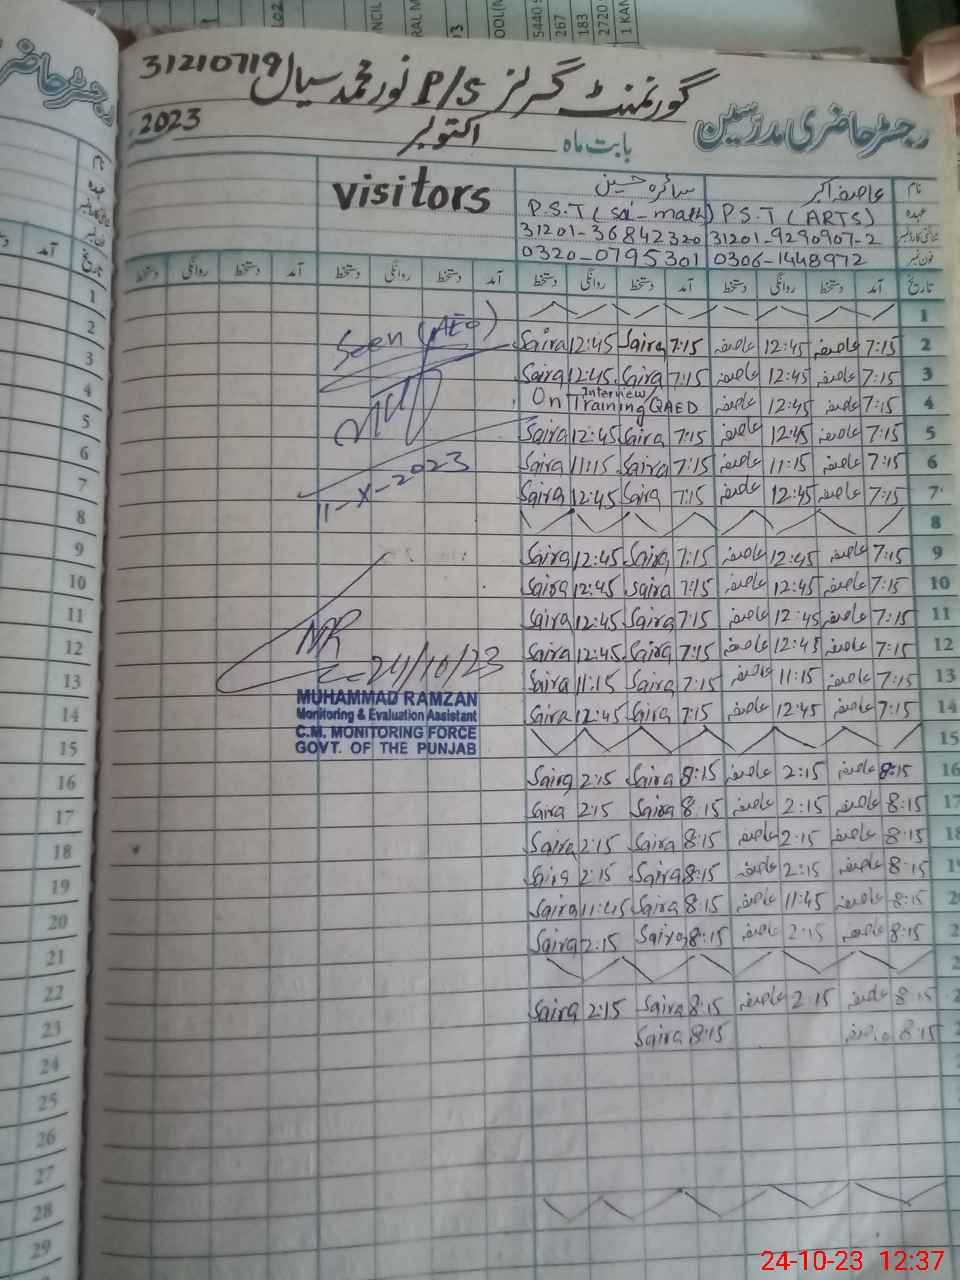 گورنمنٹ گرلز P/S نور محمد سیال 31210719
رجسٹر حاضری مدرسین
بابت ماہ اکتوبر 2023
نام
visitors
عہدہ P.S.T (ARTS) P.S.T (Sci-math)
31201-9290907-2 31201-36842320
فون نمبر 0306-1448972 0320-0795301
تاریخ آمد دستخط روانگی دستخط آمد دستخط روانگی دستخط آمد دستخط روانگی دستخط آمد دستخط روانگی دستخط
1
2 7:15 عاصفہ 12:45 عاصفہ 7:15 Saira 12:45 Saira
3 7:15 عاصفہ 12:45 عاصفہ 7:15 Saira 12:45 Saira
4 7:15 عاصفہ 12:45 عاصفہ On Interview/Training QAED
5 7:15 عاصفہ 12:45 عاصفہ 7:15 Saira 12:45 Saira
6 7:15 عاصفہ 11:15 عاصفہ 7:15 Saira 11:15 Saira
7 7:15 عاصفہ 12:45 عاصفہ 7:15 Saira 12:45 Saira
8
9 7:15 عاصفہ 12:45 عاصفہ 7:15 Saira 12:45 Saira
10 7:15 عاصفہ 12:45 عاصفہ 7:15 Saira 12:45 Saira
11 7:15 عاصفہ 12:45 عاصفہ 7:15 Saira 12:45 Saira
12 7:15 عاصفہ 12:45 عاصفہ 7:15 Saira 12:45 Saira
13 7:15 عاصفہ 11:15 عاصفہ 7:15 Saira 11:15 Saira
14 7:15 عاصفہ 12:45 عاصفہ 7:15 Saira 12:45 Saira
15
16 8:15 عاصفہ 2:15 عاصفہ 8:15 Saira 2:15 Saira
17 8:15 عاصفہ 2:15 عاصفہ 8:15 Saira 2:15 Saira
18 8:15 عاصفہ 2:15 عاصفہ 8:15 Saira 2:15 Saira
8:15 عاصفہ 2:15 عاصفہ 8:15 Saira 2:15 Saira
8:15 عاصفہ 11:45 عاصفہ 8:15 Saira 11:45 Saira
8:15 عاصفہ 2:15 عاصفہ 8:15 Saira 2:15 Saira
8:15 عاصفہ 2:15 عاصفہ 8:15 Saira 2:15 Saira
8:15 عاصفہ 8:15 Saira
Seen (AEO)
11-X-2023
MR
24/10/23
MUHAMMAD RAMZAN
Monitoring & Evaluation Assistant
C.M. MONITORING FORCE
GOVT. OF THE PUNJAB
1
2
3
4
5
6
7
8
9
10
11
12
13
14
15
16
17
18
19
20
21
22
23
24
25
26
27
28
29
24-10-23 12:37